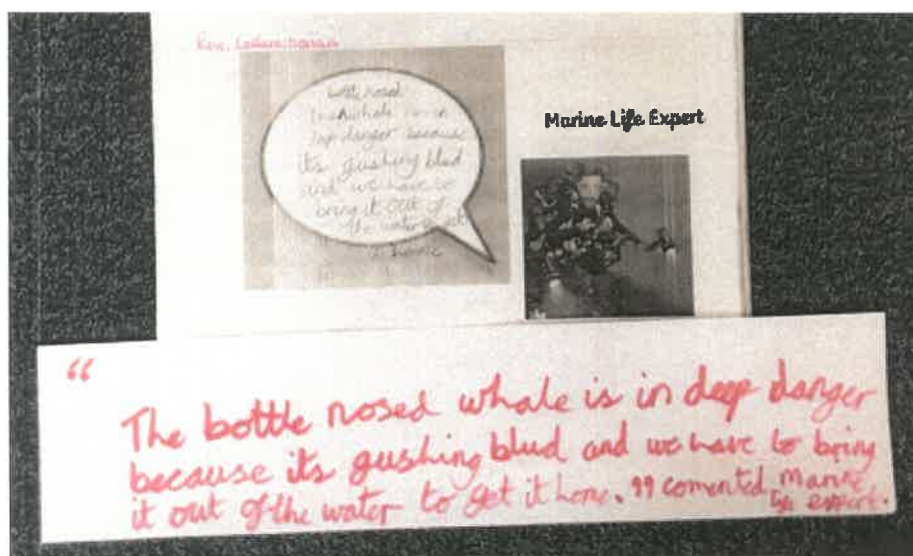 bottle nosed
whale is in
deep danger because
it's gushing blud
and we have to
bring it out of
the water to get
it home
Marine Life Expert
“
The bottle nosed whale is in deep danger
because its gushing blud and we have to bring
it out of the water to get it home. ” comented marine
life expert.